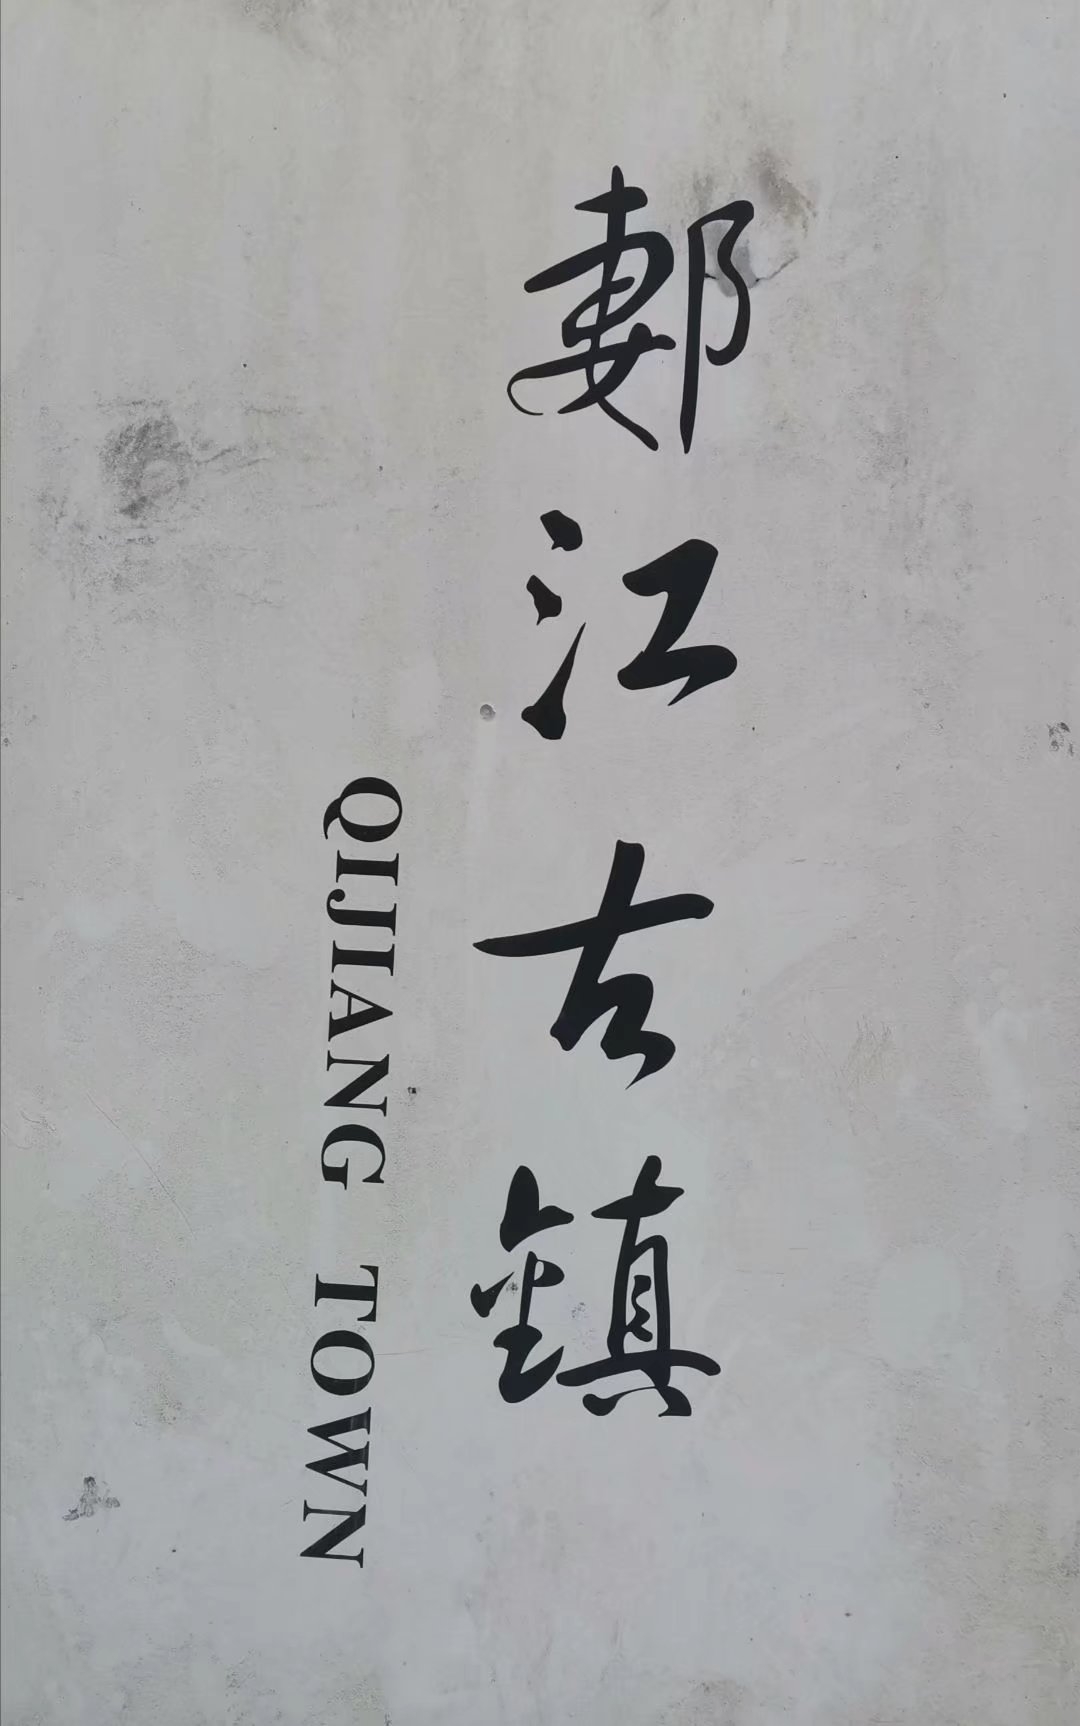 郪江古鎮
QIJIANG TOWN